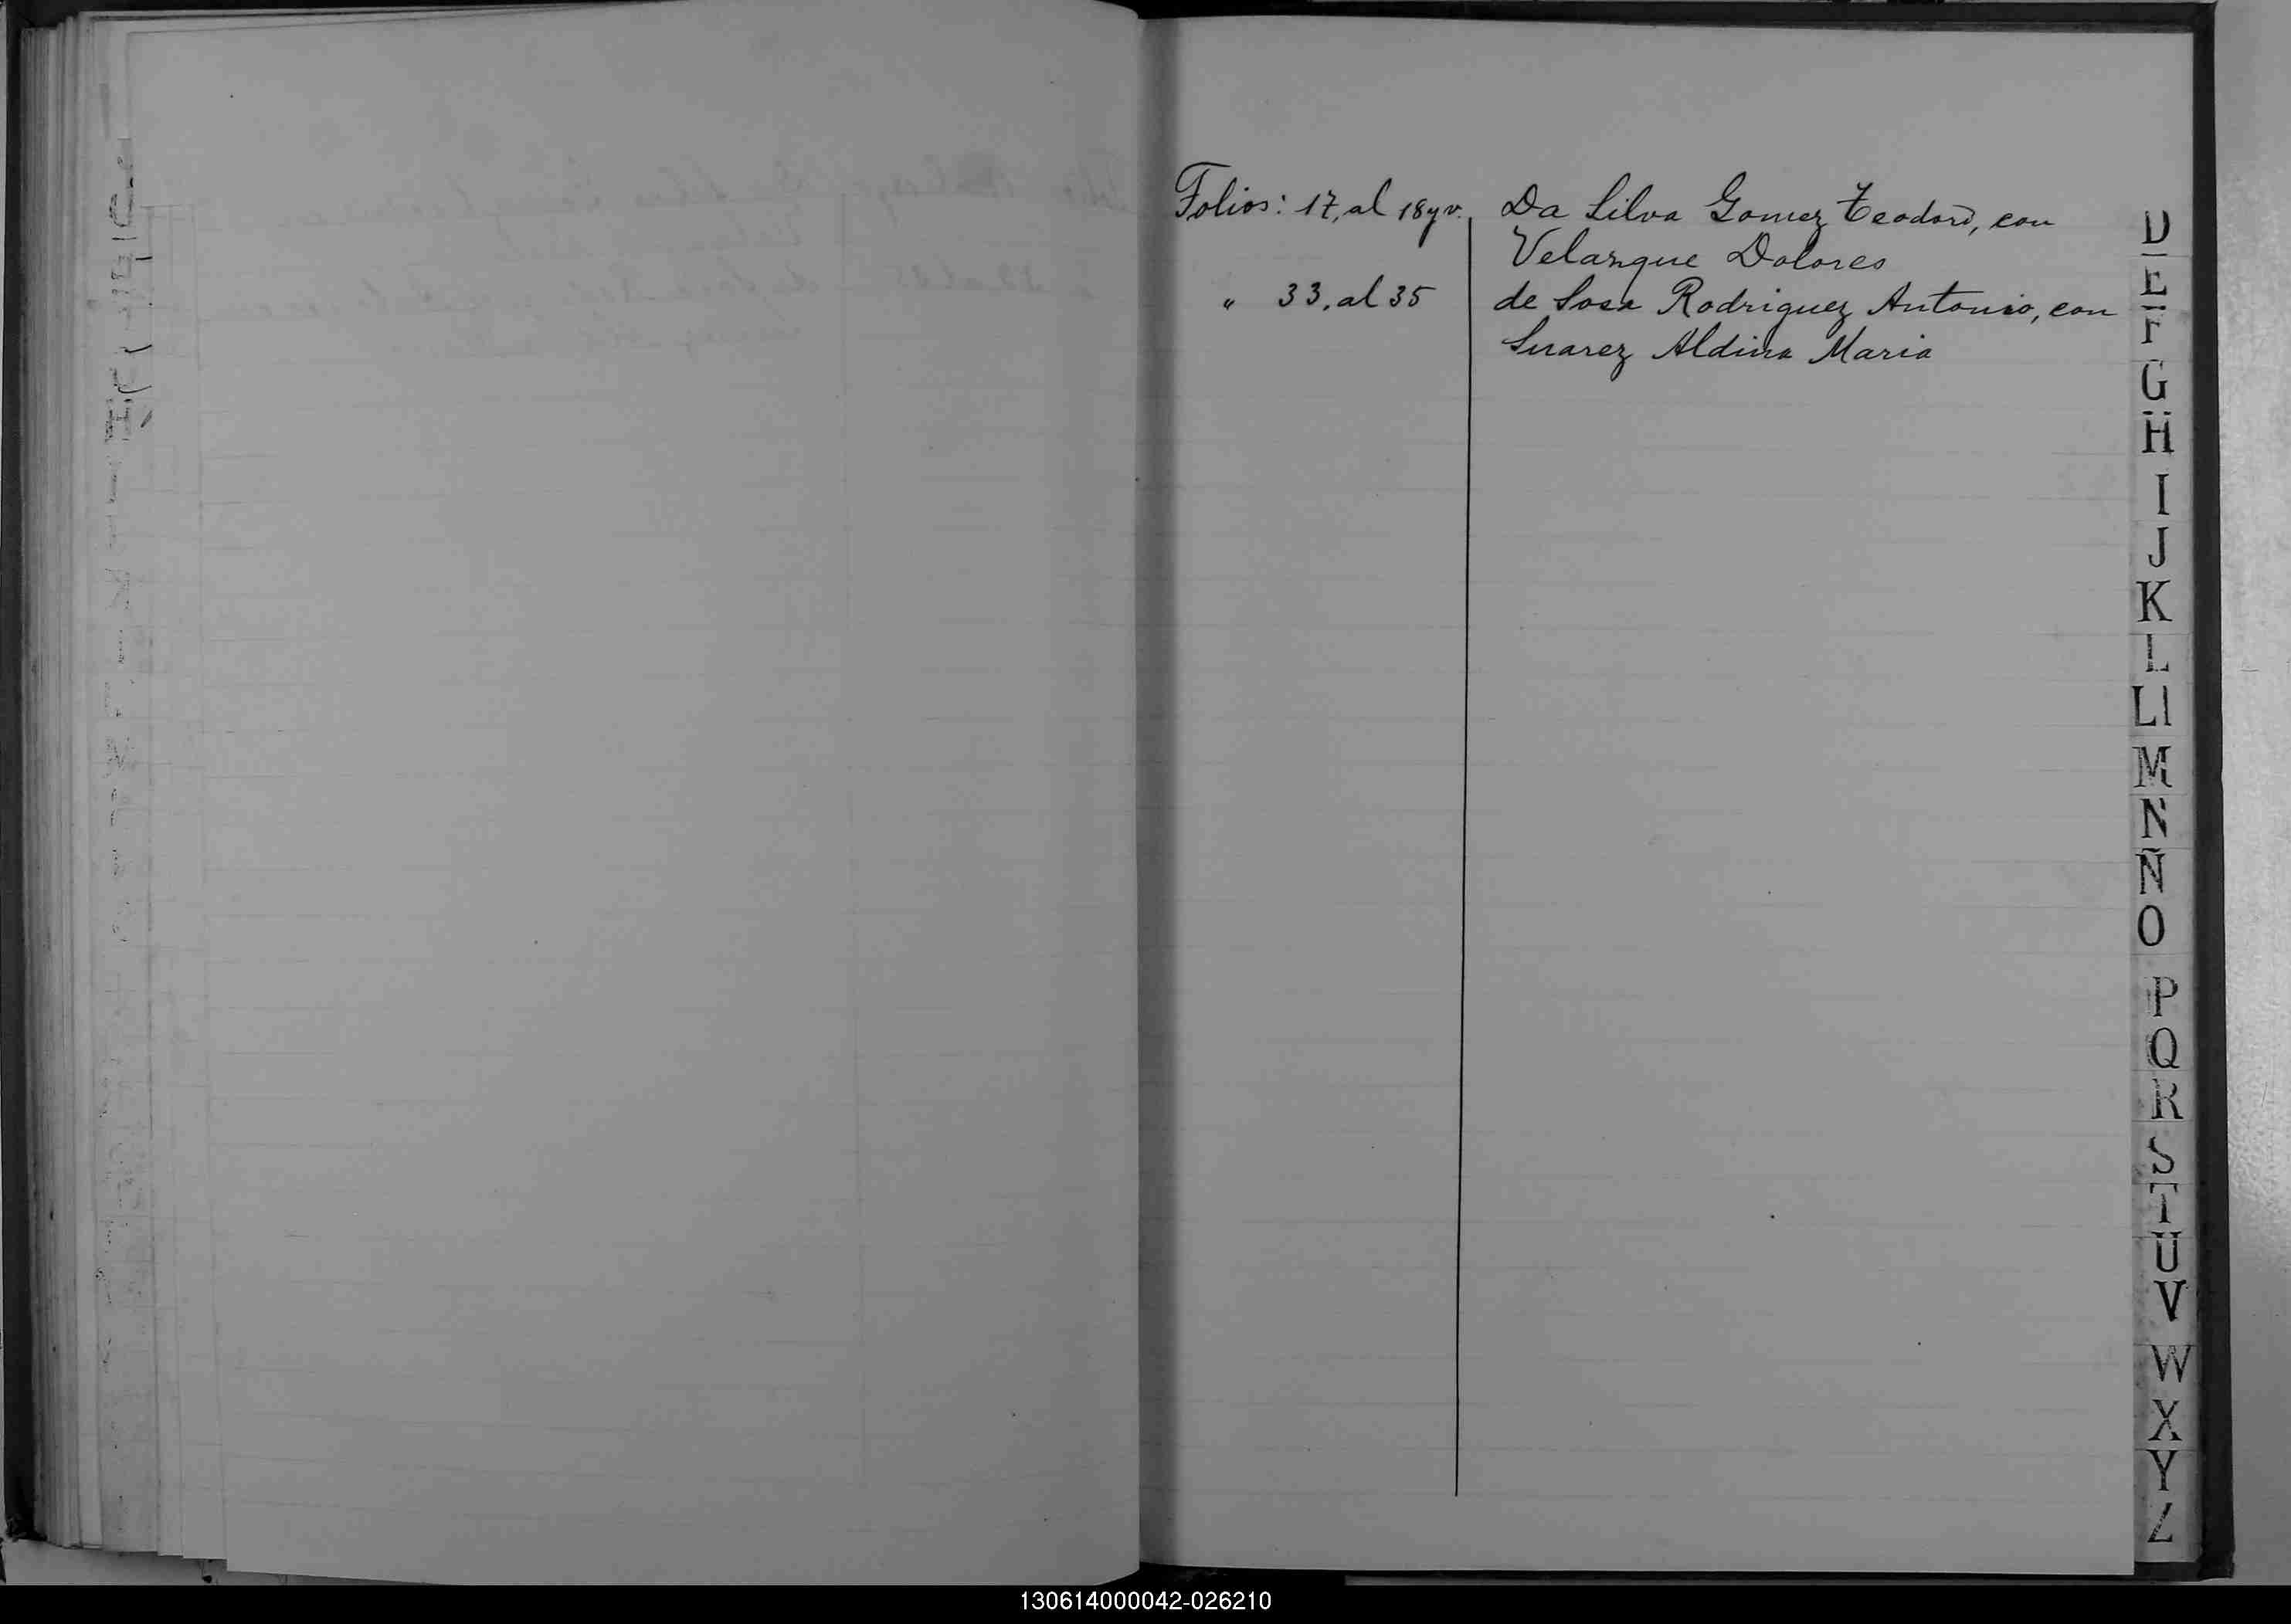 Folios: 17, al 18 y v. Da Silva Gomez Teodoro, con
Velazque Dolores
" 33, al 35 de Sosa Rodriguez Antonio, con
Suarez Aldina Maria
D
E
F
G
H
I
J
K
L
Ll
M
N
Ñ
O
P
Q
R
S
T
U
V
W
X
Y
Z
130614000042-026210